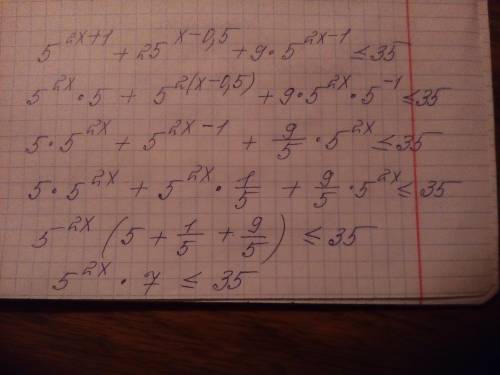 5^{2x+1} + 25^{x-0,5} + 9·5^{2x-1} ≤ 35
5^{2x}·5 + 5^{2(x-0,5)} + 9·5^{2x}·5^{-1} ≤ 35
5·5^{2x} + 5^{2x-1} + \frac{9}{5}·5^{2x} ≤ 35
5·5^{2x} + 5^{2x}·\frac{1}{5} + \frac{9}{5}·5^{2x} ≤ 35
5^{2x}(5 + \frac{1}{5} + \frac{9}{5}) ≤ 35
5^{2x}·7 ≤ 35